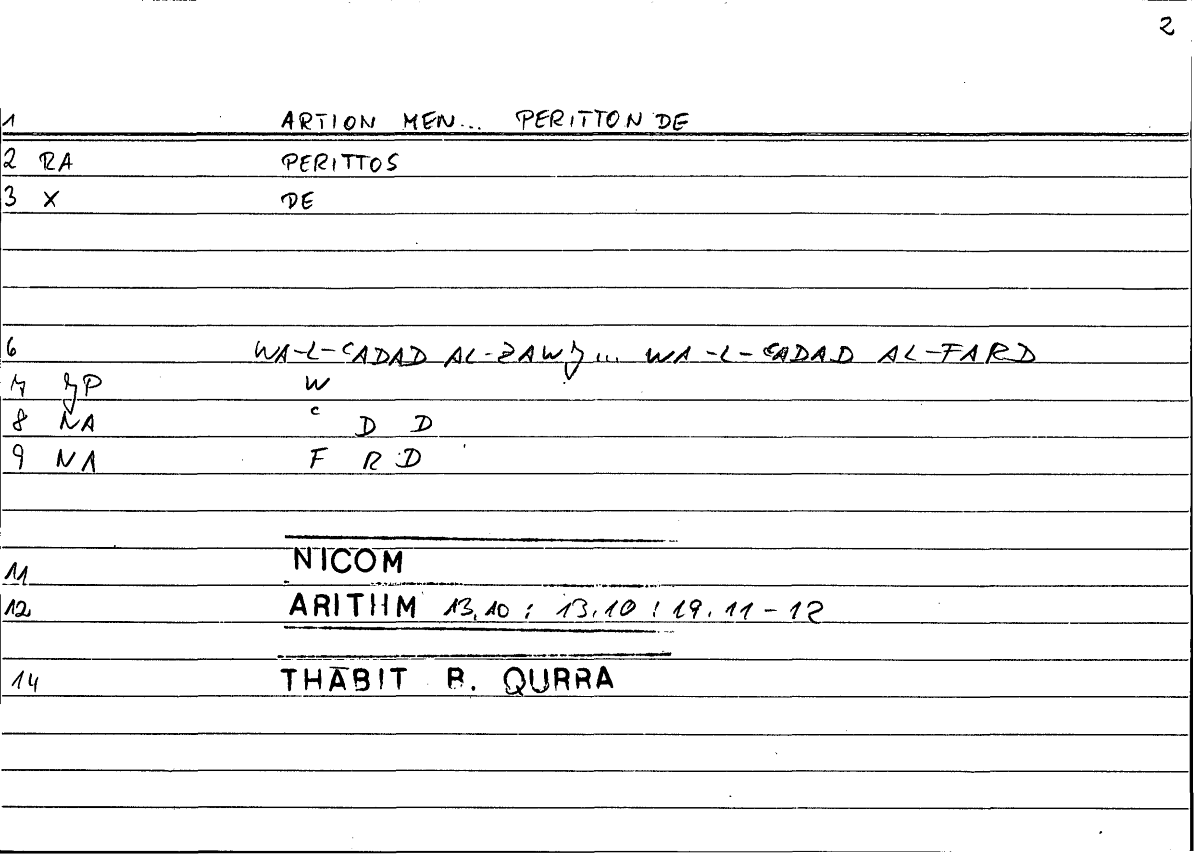 2
1 ARTION MEN... PERITTON DE
2 RA PERITTOS
3 X DE
6 WA-L-ʿADAD AL-ZAWJ... WA-L-ʿADAD AL-FARD
7 JP W
8 NA ʿ D D
9 NA F R D
11 NICOM
12 ARITHM 13.10 : 13.10 : 19.11-12
14 THĀBIT B. QURRA